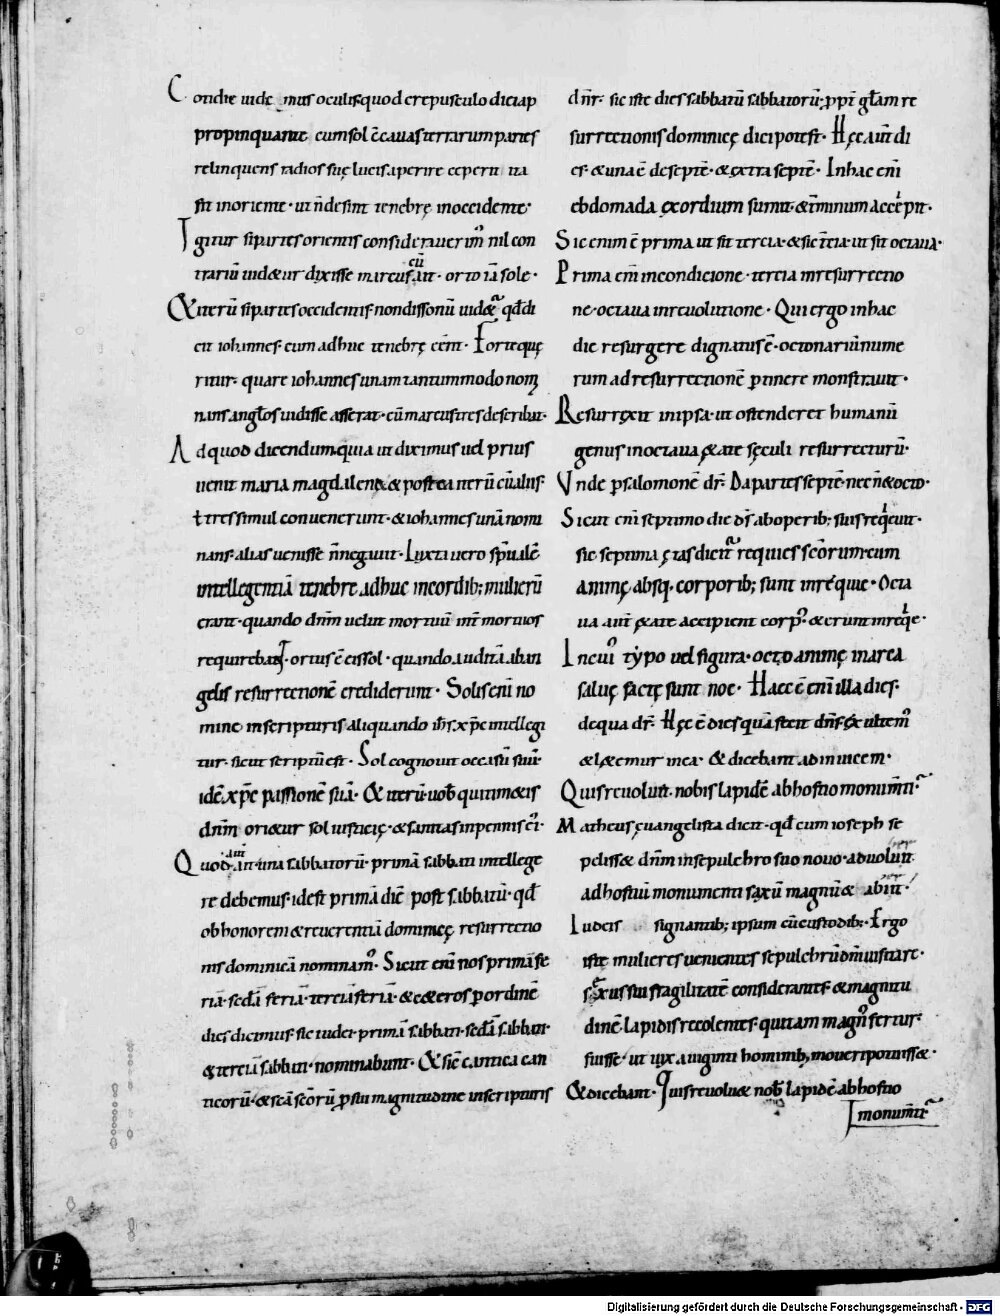 Cotidie uidemus oculis quod crepusculo diei ap
propinquante cum sol ēcauas terrarum partes
relinquens radios suę lucis aperire ceperit ita
sit in oriente · ut n̄ desint tenebrę in occidente ·
Igitur si partes orientis considerauerim᾽ nil con
trariū uidetur dixisse marcus cū ait · orto iā sole ·
Et iterū si partes occidentis non dissonū uidetur qd̄ di
cit iohannes cum adhuc tenebrę eēnt · Forte quę
ritur · quare iohannes unam tantummodo nomi
nans anglōs uidisse asserat · cū marcus tres describat ·
Ad quod dicendum quia ut diximus uel prius
uenit maria magdalene & postea iterū cū aliis ·
ł tres simul conuenerunt · & iohannes unā nomi
nans · alias uenisse n̄ negauit · Iuxta uero sp̄ualē
intellegentiā tenebrę adhuc in cordib; mulierū
erant · quando dn̄m uelut mortuū int̄ mortuos
requirebant · ortus ē eis sol · quando audita ab an
gelis resurrectionē crediderunt · Solis eni no
mine in scripturis aliquando ih̄s xp̄c intellegi
tur · sicut scriptū est · Sol cognouit occasū suū ·
idē xp̄c passionē suā · Et iterū uob̄ qui timetis
dn̄m orietur sol iusticię · & sanitas in pennis ei᾽ ·
Quod aūt una sabbatorū · primā sabbati intellege
re debemus · id est primā diē post sabbatū · qd̄
ob honorem & reuerentiā dominicę resurrectio
nis dominicā nominam᾽ · Sicut eni nos primā fe
riā · sēdā feriā · terciā feriā · & ceteros p ordinē
dies dicimus · sic iudei primā sabbati · sēdā sabbati ·
& terciā sabbati · nominabunt · Et sic̄ cantica can
ticorū · & sc̄a sc̄orū p sui magnitudine in scripturis
dn̄r · sic iste dies sabbatū sabbatorū; ppt̄ głam re
surrectionis dominicę dici potest · Hęc aūt di
es · & una ē de septē · & extra septē · In hac eni
ebdomada exordium sumit · & t̄minum accepit ·
Sic enim ē prima ut sit tercia · & sic t̄cia · ut sit octaua ·
Prima eni in condicione · tercia in resurrectio
ne · octaua in reuolutione · Qui ergo in hac
die resurgere dignatus ē · octonariū nume
rum ad resurrectionē ptinere monstrauit ·
Resurrexit in ipsa · ut ostenderet humanū
genus in octaua ętate sęculi resurrecturū ·
Vnde p salomonē dr̄ · Da partes septē · nec n̄ & octo ·
Sicut eni septimo die ds̄ ab operib; suis requieuit ·
sic septima ętas dicitur requies sc̄orum cum
animę absq, corporib; sunt in requie · Octa
ua aūt ętate accipient corp᾽ · & erunt in requie ·
In cui᾽ typo uel figura · octo animę in arca
saluę factę sunt noe · Haec ē eni illa dies ·
de qua dr̄ · Hęc ē dies quā fecit dn̄s · exultem᾽
& lętemur in ea · & dicebant ad inuicem ·
Quis reuoluit nobis lapidē ab hostio monum̄ti ·
Matheus euangelista dicit · qd̄ cum ioseph se
pelisset dn̄m in sepulchro suo nouo · aduoluit
ad hostiū monumenti saxū magnū & abiit ·
Iudeis signantib; ipsum cū custodib; · Ergo
iste mulieres uenientes sepulchrū dn̄i uisitare ·
sexus sui fragilitatē considerantes · & magnitu
dinē lapidis recolentes · qui tam magn᾽ fertur ·
fuisse · ut uix a uiginti hominib; moueri potuisset ·
& dicebant · Quis reuoluet nob̄ lapidē ab hostio
monum̄ti
Digitalisierung gefördert durch die Deutsche Forschungsgemeinschaft - DFG